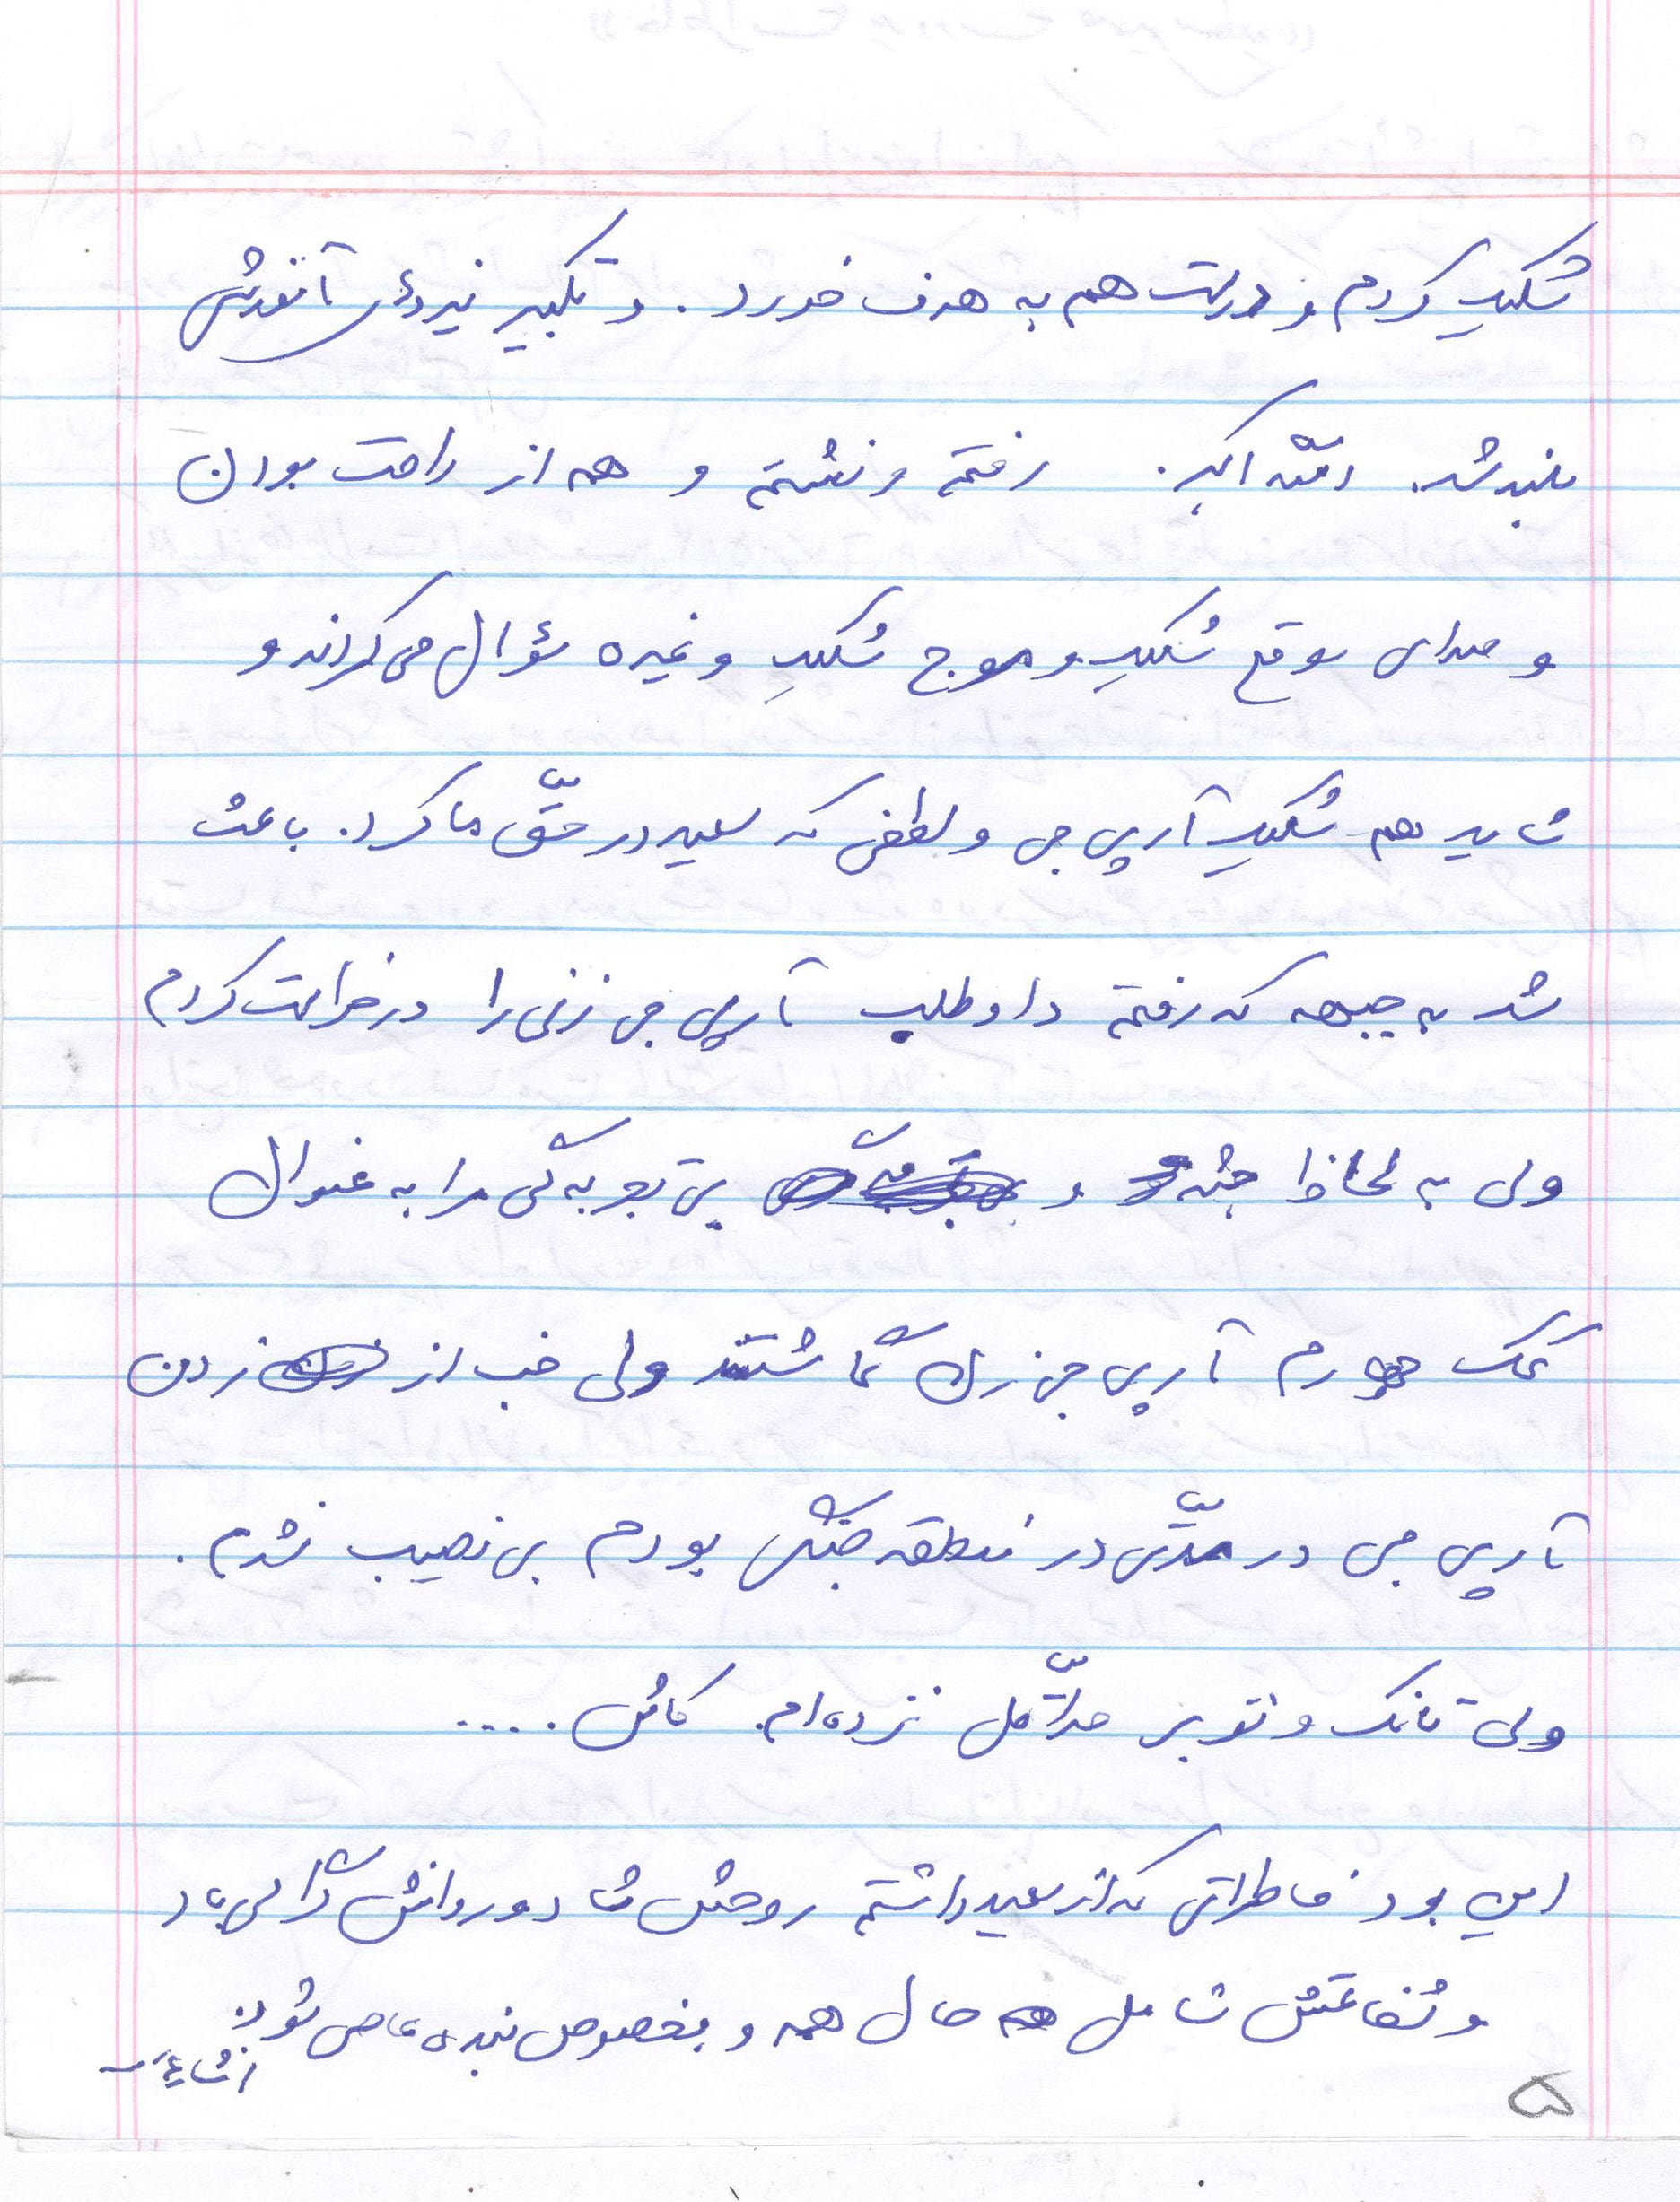 شلیک کردم و درست هم به هدف خورد. و تکبیر نیروی آنقدرش
بلند شد. الله اکبر. رفتم و نشستم و همه از راحت بودن
و صدای موقع شلیک و موج شلیک و غیره سؤال می‌کردند و
شاید هم شلیک آرپی جی و لطفی که سعید در حقّ ما کرد. باعث
شد به جبهه که رفتم داوطلب آرپی جی زنی را درخواست کردم
ولی به لحاظ جثه و بی تجربه گی مرا به عنوان
کمک دوم آرپی جی زن گماشتند ولی خب از زدن
آرپی جی در مدّتی در منطقه جنگی بودم بی نصیب نشدم.
ولی تانک و نفربر حدّاقل نزده‌ام. کاش ....
این بود خاطراتی که از سعید داشتم روحش شاد و روانش گرامی باد
و شفاعتش شامل حال همه و بخصوص بنده‌ی عاصی شود.
انشاءالله
۵